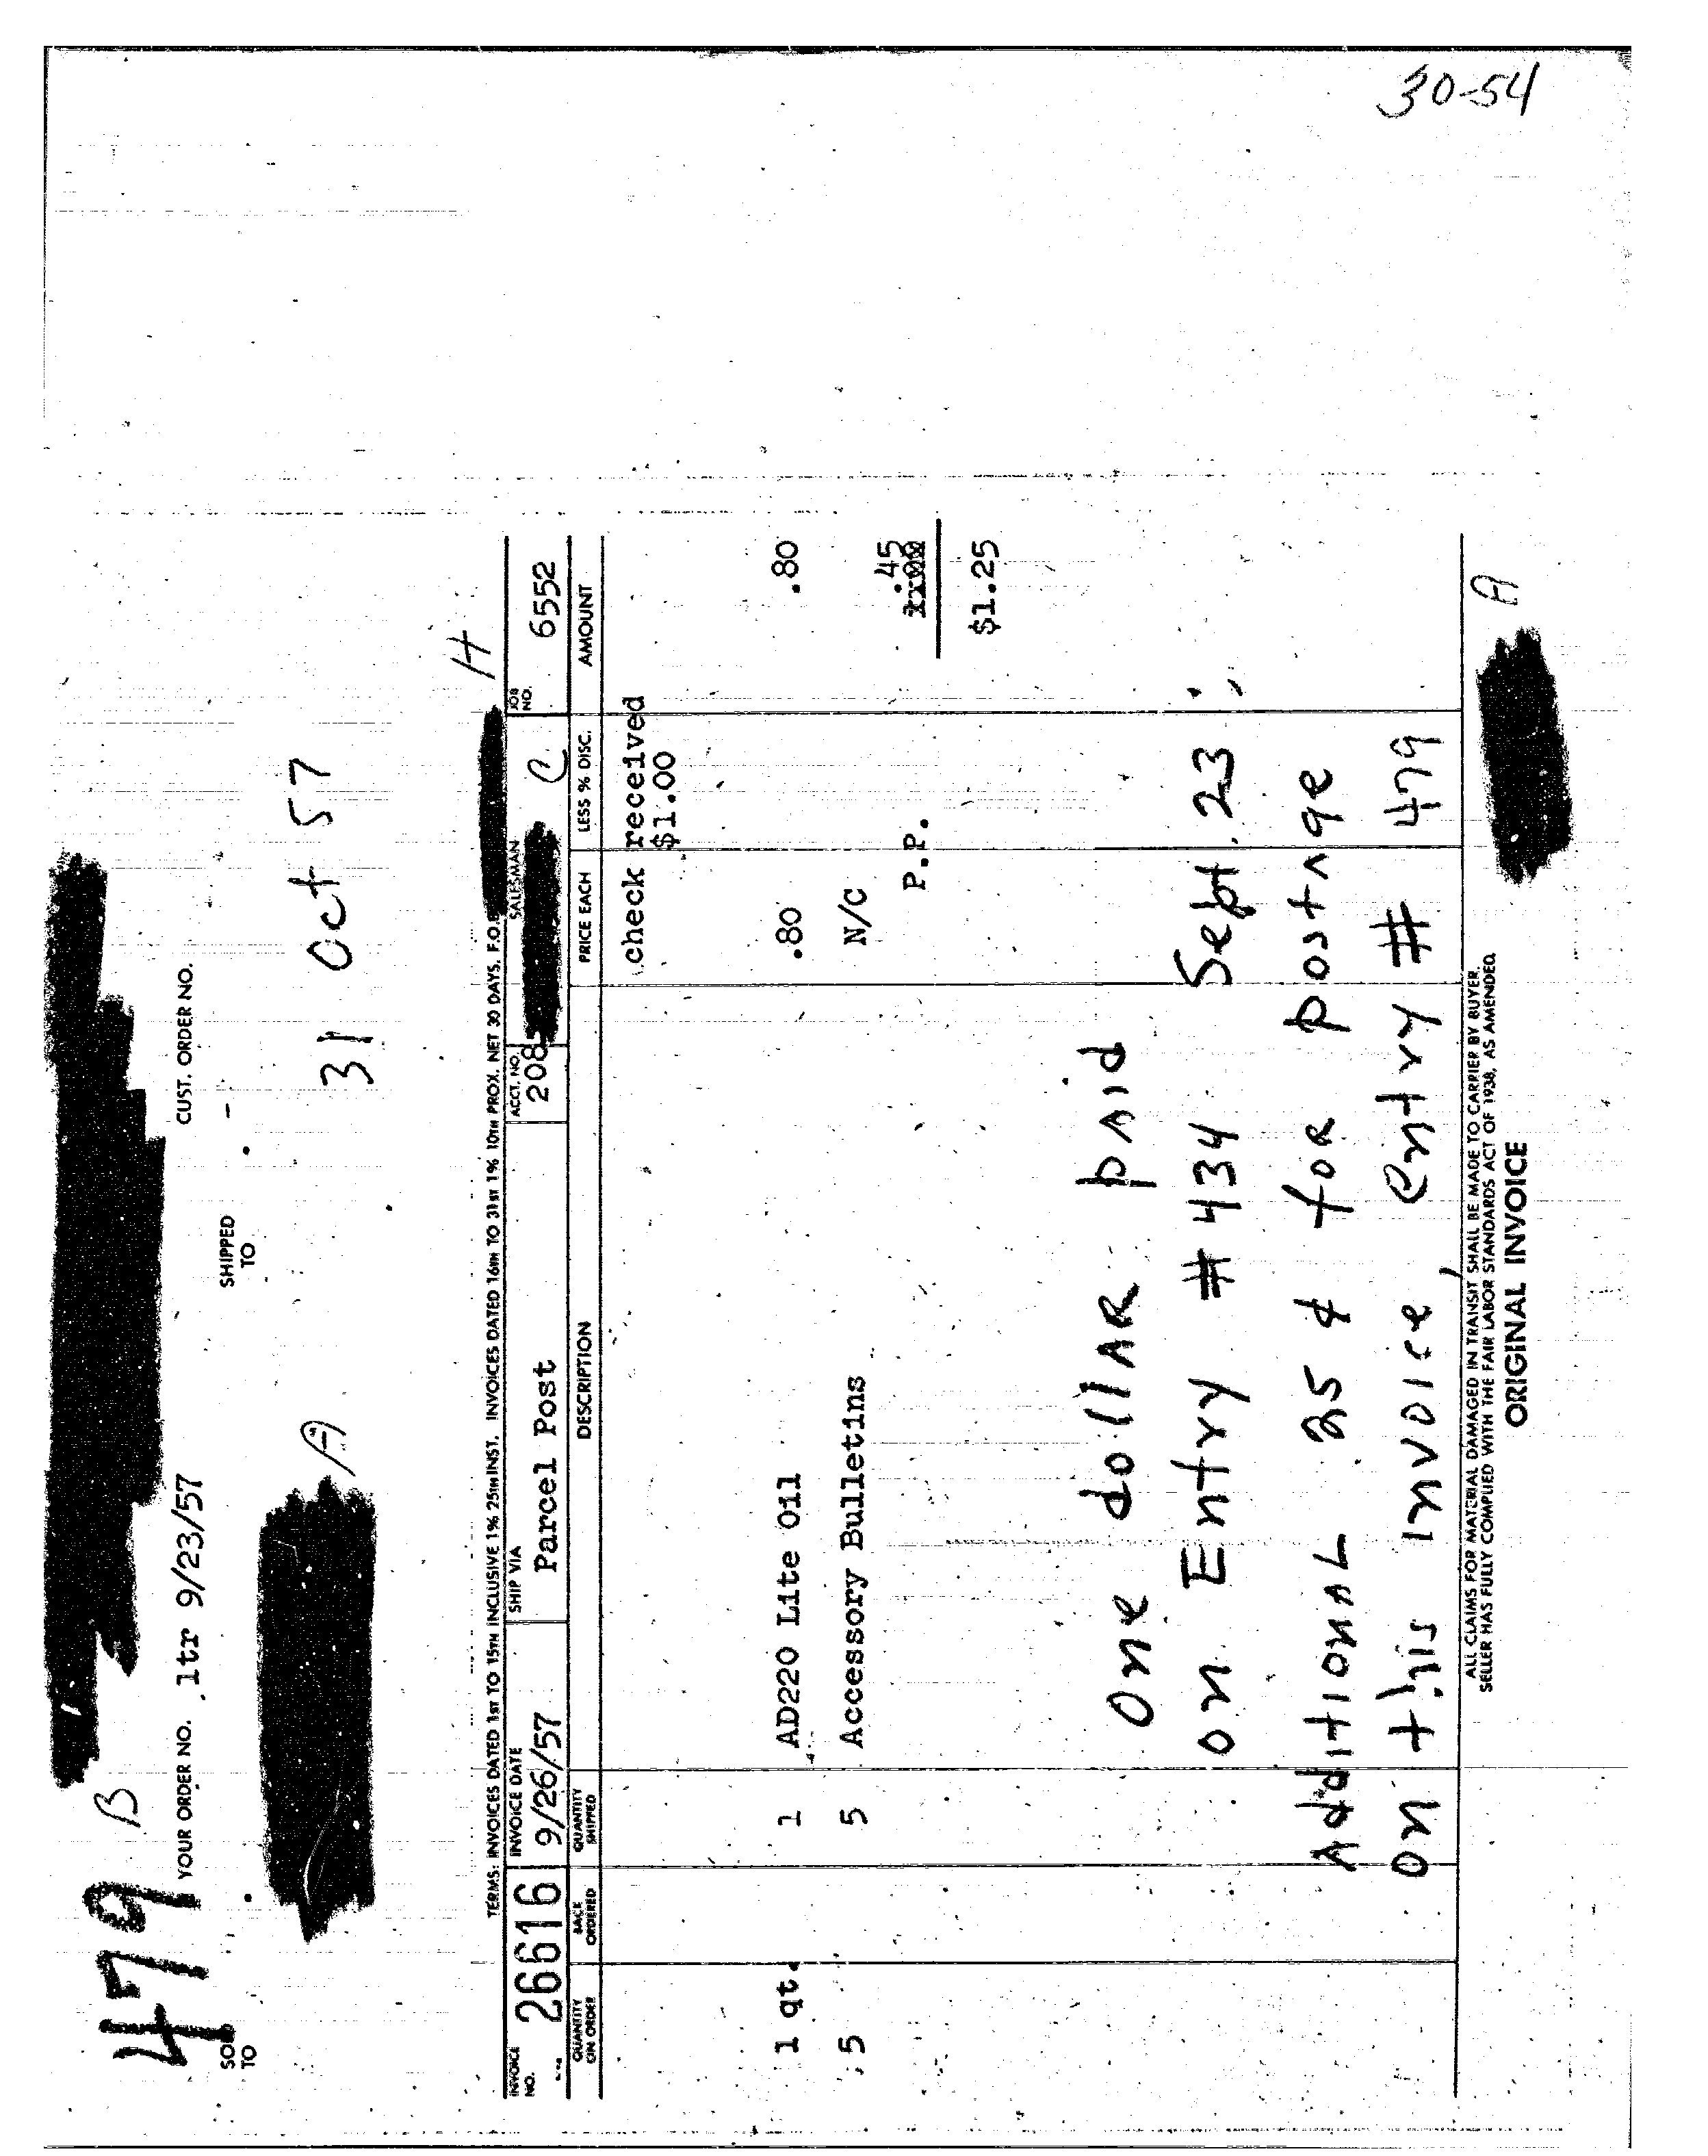 30-54
479 B
YOUR ORDER NO. ltr 9/23/57
CUST. ORDER NO.
SOLD TO
SHIPPED TO -
A
31 Oct 57
H
TERMS: INVOICES DATED 1ST TO 15TH INCLUSIVE 1% 25TH INST. INVOICES DATED 16TH TO 31ST 1% 10TH PROX. NET 30 DAYS. F.O.
INVOICE NO. 26616 INVOICE DATE 9/26/57 SHIP VIA Parcel Post ACCT. NO. 208 SALESMAN C JOB NO. 6552
QUANTITY ON ORDER BACK ORDERED QUANTITY SHIPPED DESCRIPTION PRICE EACH LESS % DISC. AMOUNT
check received
$1.00
1 qt. 1 AD220 Lite Oil .80 .80
5 5 Accessory Bulletins N/C
P.P. .45
$1.25
One dollar paid
on Entry #434 Sept. 23
Additional 25¢ for postage
on this invoice, entry # 479
ALL CLAIMS FOR MATERIAL DAMAGED IN TRANSIT SHALL BE MADE TO CARRIER BY BUYER.
SELLER HAS FULLY COMPLIED WITH THE FAIR LABOR STANDARDS ACT OF 1938, AS AMENDED.
ORIGINAL INVOICE
A